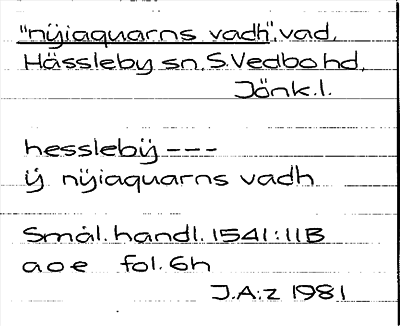 "nÿiaquarns vadh", vad,
Hässleby sn. S. Vedbo hd,
Jönk. l.
hesslebÿ ---
ÿ nÿiaquarns vadh
Smål. handl. 1541:11B
a o e fol. 6h
J.A:z 1981